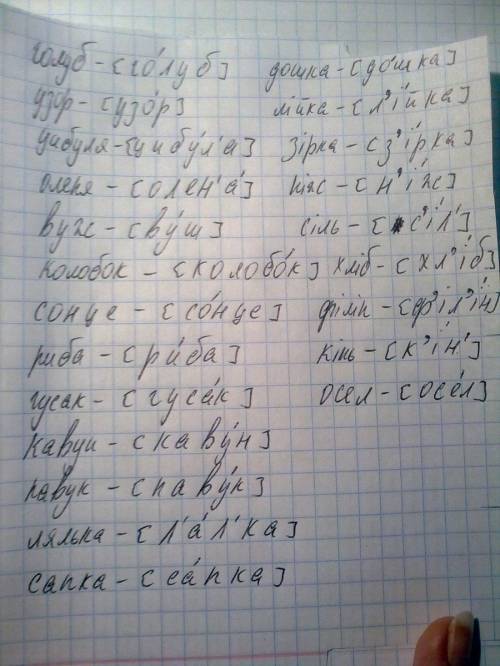 голуб - [го́луб]
узор - [узо́р]
цибуля - [цибу́л'а]
оленя - [олен'а́]
вуж - [ву́ш]
колобок - [колобо́к]
сонце - [со́нце]
риба - [ри́ба]
гусак - [гуса́к]
кавун - [каву́н]
павук - [паву́к]
лялька - [л'а́л'ка]
сапка - [са́пка]
дошка - [до́шка]
лійка - [л'і́йка]
зірка - [з'і́рка]
ніж - [н'і́ж]
сіль - [с'і́л']
хліб - [хл'і́б]
філін - [ф'іл'і́н]
кінь - [к'і́н']
осел - [осе́л]